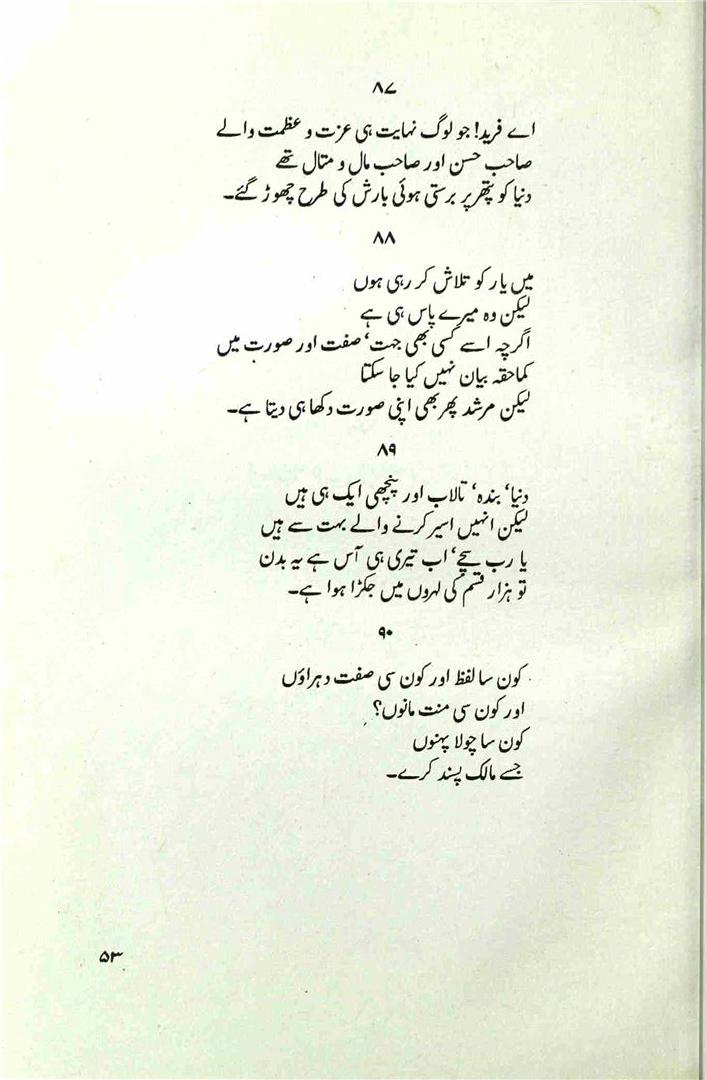 ۸۷
اے فرید! جو لوگ نہایت ہی عزت و عظمت والے
صاحب حسن اور صاحب مال و متال تھے
دنیا کو پتھر پر برستی ہوئی بارش کی طرح چھوڑ گئے۔
۸۸
میں یار کو تلاش کر رہی ہوں
لیکن وہ میرے پاس ہی ہے
اگرچہ اسے کسی بھی جہت، صفت اور صورت میں
کماحقہ بیان نہیں کیا جا سکتا
لیکن مرشد پھر بھی اپنی صورت دکھا ہی دیتا ہے۔
۸۹
دنیا، بندہ، تالاب اور پنچھی ایک ہی ہیں
لیکن انہیں اسیر کرنے والے بہت سے ہیں
یا رب سچے، اب تیری ہی آس ہے یہ بدن
تو ہزار قسم کی لہروں میں جکڑا ہوا ہے۔
۹۰
کون سا لفظ اور کون سی صفت دہراؤں
اور کون سی منت مانوں؟
کون سا چولا پہنوں
جسے مالک پسند کرے۔
۵۳